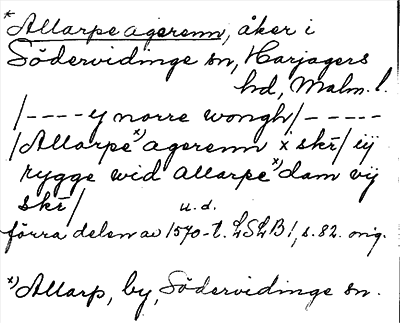 *Allarpe agerenn, åker i
Södervidinge sn, Harjagers
hd, Malm. l.
/----y norre wongh/-----
/Allarpe x) agerenn x skr/ iij
rygge wid allarpe x) dam vij
skr/ u. d.
förra delen av 1570-t. LSLB 1, s. 82. orig.
x) Allarp, by, Södervidinge sn.